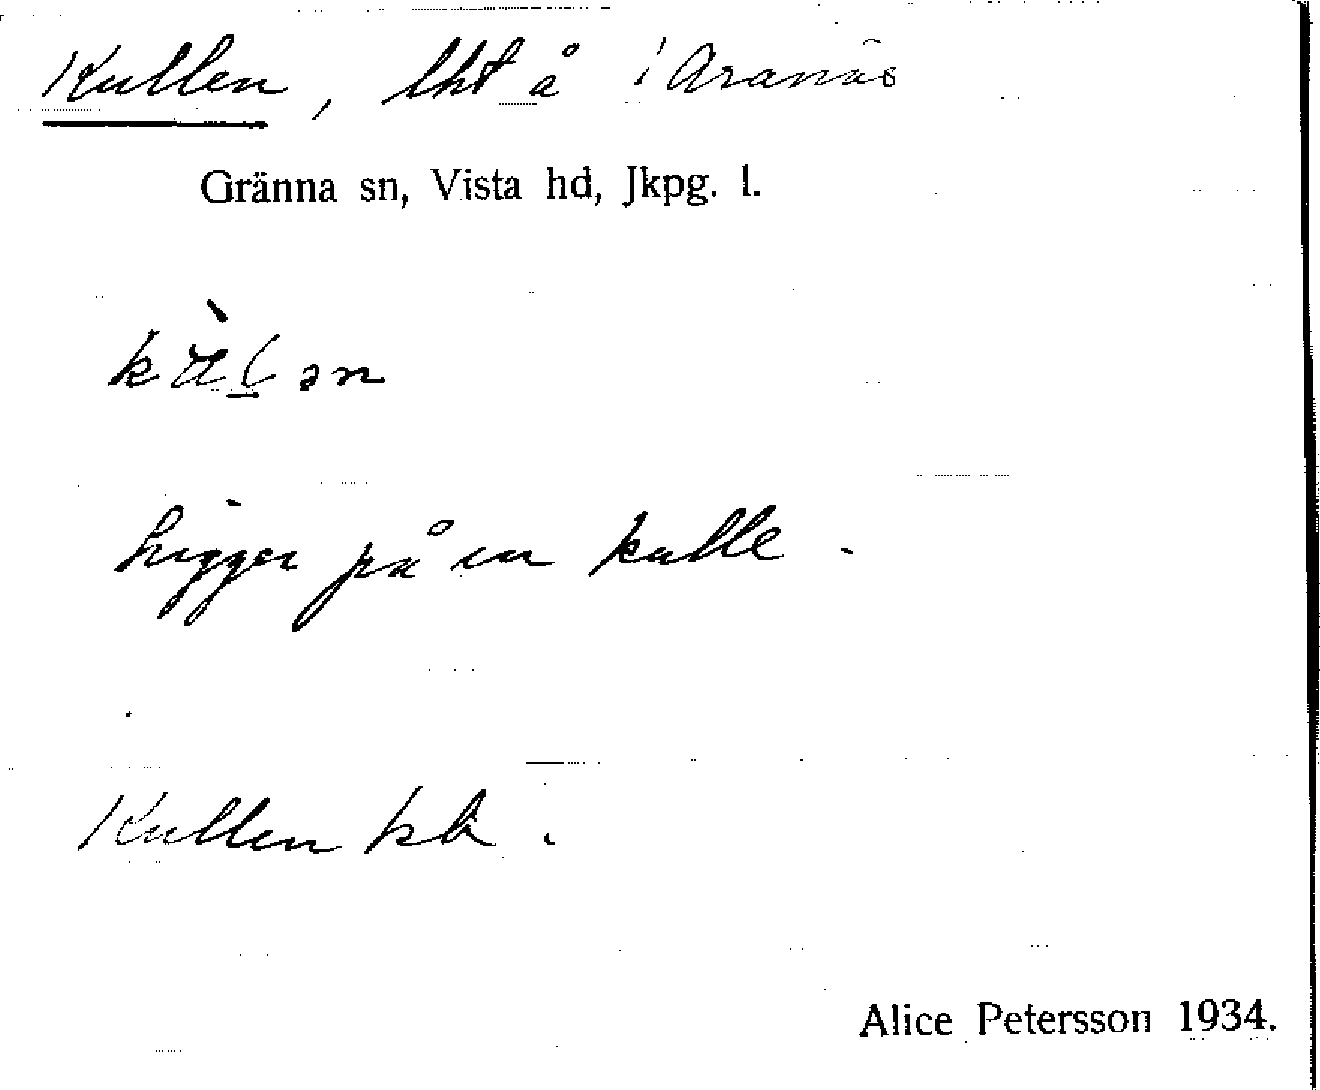 Kullen, lht å 1 Aranäs
Gränna sn, Vista hd, Jkpg. l.
Ligger på en kulle.
Kullen kb.
Alice Petersson 1934.